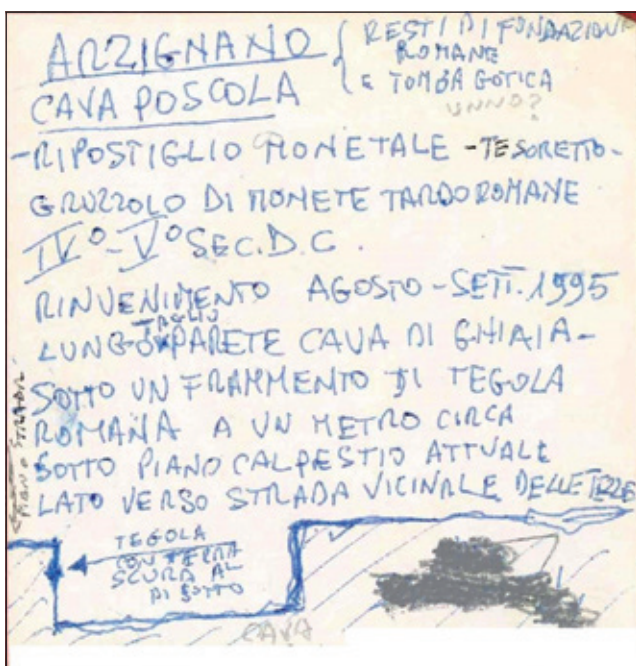 ARZIGNANO
CAVA POSCOLA
RESTI DI FONDAZIONI
ROMANE
E TOMBA GOTICA
UNNO?
-RIPOSTIGLIO MONETALE -TESORETTO-
GRUZZOLO DI MONETE TARDOROMANE
IV°-V° SEC. D.C.
RINVENIMENTO AGOSTO-SETT. 1995
TAGLIO
LUNGO PARETE CAVA DI GHIAIA-
SOTTO UN FRAMMENTO DI TEGOLA
ROMANA A UN METRO CIRCA
SOTTO PIANO CALPESTIO ATTUALE
LATO VERSO STRADA VICINALE DELLE
PIANO STRADA
TEGOLA
CON TERRA
SCURA AL
DI SOTTO
CAVA